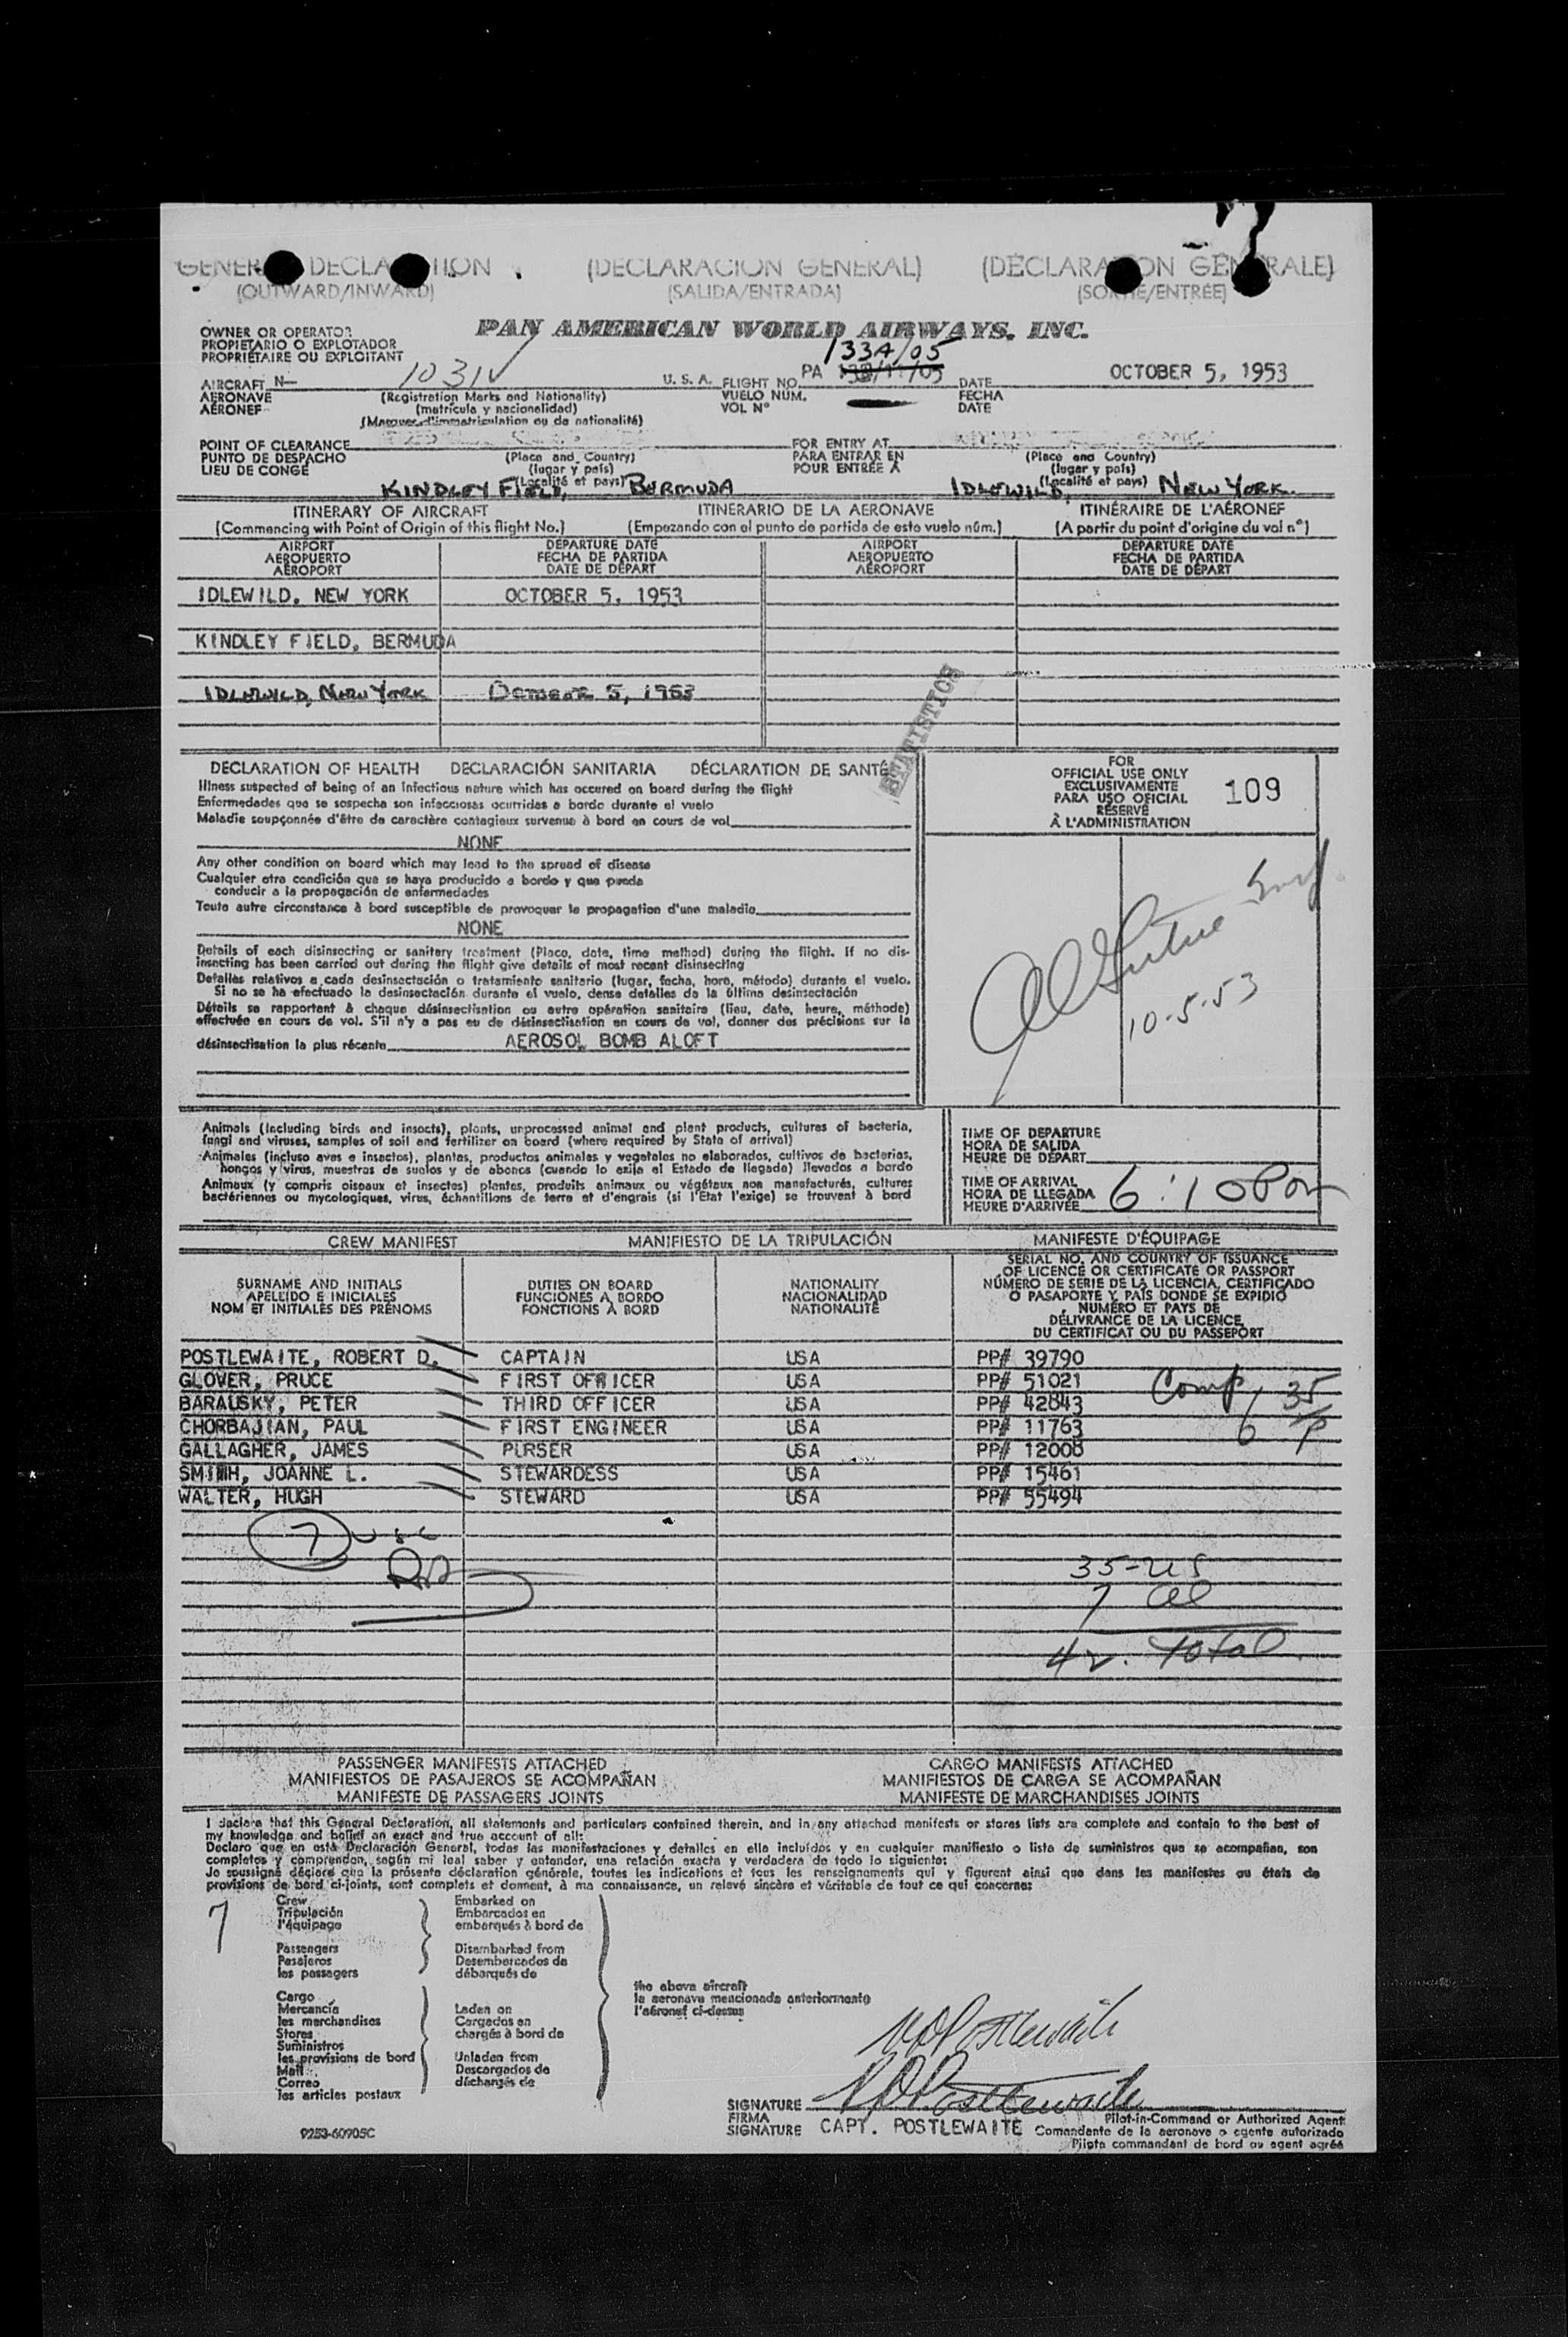 GENER DECLA TION (DECLARACION GENERAL) (DÉCLARA ON GÉN RALE)
(OUTWARD/INWARD) (SALIDA/ENTRADA) (SORTIE/ENTRÉE)
OWNER OR OPERATOR PAN AMERICAN WORLD AIRWAYS, INC.
PROPIETARIO O EXPLOTADOR
PROPRIÉTAIRE OU EXPLOITANT
133A/05
AIRCRAFT N— 1031V U. S. A. FLIGHT NO. PA DATE OCTOBER 5, 1953
AERONAVE (Registration Marks and Nationality) VUELO NUM. FECHA
AÉRONEF (matrícula y nacionalidad) VOL Nº DATE
(Marques d'immatriculation ou de nationalité)
POINT OF CLEARANCE FOR ENTRY AT
PUNTO DE DESPACHO (Place and Country) PARA ENTRAR EN (Place and Country)
LIEU DE CONGÉ (lugar y país) POUR ENTRÉE À (lugar y país)
(Localité et pays) (Localité et pays)
KINDLEY FIELD, BERMUDA IDLEWILD, NEW YORK.
ITINERARY OF AIRCRAFT ITINERARIO DE LA AERONAVE ITINÉRAIRE DE L'AÉRONEF
(Commencing with Point of Origin of this flight No.) (Empezando con el punto de partida de este vuelo núm.) (A partir du point d'origine du vol nº)
AIRPORT DEPARTURE DATE AIRPORT DEPARTURE DATE
AEROPUERTO FECHA DE PARTIDA AEROPUERTO FECHA DE PARTIDA
AÉROPORT DATE DE DÉPART AÉROPORT DATE DE DÉPART
IDLEWILD, NEW YORK OCTOBER 5, 1953
KINDLEY FIELD, BERMUDA
IDLEWILD, NEW YORK OCTOBER 5, 1953
STATISTICS
DECLARATION OF HEALTH DECLARACIÓN SANITARIA DÉCLARATION DE SANTÉ
Illness suspected of being of an infectious nature which has occured on board during the flight
Enfermedades que se sospecha son infecciosas ocurridas a bordo durante el vuelo
Maladie soupçonnée d'être de caractère contagieux survenue à bord en cours de vol
NONE
FOR
OFFICIAL USE ONLY
EXCLUSIVAMENTE
PARA USO OFICIAL
RÉSERVÉ
À L'ADMINISTRATION
109
Any other condition on board which may lead to the spread of disease
Cualquier otra condición que se haya producido a bordo y que pueda
conducir a la propagación de enfermedades
Toute autre circonstance à bord susceptible de provoquer la propagation d'une maladie
NONE
Details of each disinsecting or sanitary treatment (Place, date, time method) during the flight. If no dis-
insecting has been carried out during the flight give details of most recent disinsecting
Detalles relativos a cada desinsectación o tratamiento sanitario (lugar, fecha, hora, método) durante el vuelo.
Si no se ha efectuado la desinsectación durante el vuelo, dense detalles de la última desinsectación
Détails se rapportant à chaque désinsectisation ou autre opération sanitaire (lieu, date, heure, méthode)
effectuée en cours de vol. S'il n'y a pas eu de désinsectisation en cours de vol, donner des précisions sur la
désinsectisation la plus récente AEROSOL BOMB ALOFT
10-5-53
Animals (including birds and insects), plants, unprocessed animal and plant products, cultures of bacteria,
fungi and viruses, samples of soil and fertilizer on board (where required by State of arrival)
Animales (incluso aves e insectos), plantas, productos animales y vegetales no elaborados, cultivos de bacterias,
hongos y virus, muestras de suelos y de abonos (cuando lo exija el Estado de llegada) llevados a bordo
Animaux (y compris oiseaux et insectes) plantes, produits animaux ou végétaux non manufacturés, cultures
bactériennes ou mycologiques, virus, échantillons de terre et d'engrais (si l'Etat l'exige) se trouvant à bord
TIME OF DEPARTURE
HORA DE SALIDA
HEURE DE DÉPART
TIME OF ARRIVAL
HORA DE LLEGADA 6:10 Pm
HEURE D'ARRIVÉE
CREW MANIFEST MANIFIESTO DE LA TRIPULACIÓN MANIFESTE D'ÉQUIPAGE
SURNAME AND INITIALS DUTIES ON BOARD NATIONALITY
APELLIDO E INICIALES FUNCIONES A BORDO NACIONALIDAD
NOM ET INITIALES DES PRÉNOMS FONCTIONS À BORD NATIONALITÉ
SERIAL NO. AND COUNTRY OF ISSUANCE
OF LICENCE OR CERTIFICATE OR PASSPORT
NÚMERO DE SERIE DE LA LICENCIA, CERTIFICADO
O PASAPORTE Y PAIS DONDE SE EXPIDIÓ
NUMÉRO ET PAYS DE
DÉLIVRANCE DE LA LICENCE,
DU CERTIFICAT OU DU PASSEPORT
POSTLEWAITE, ROBERT D. CAPTAIN USA PP# 39790
GLOVER, PRUCE FIRST OFFICER USA PP# 51021
BARAUSKY, PETER THIRD OFFICER USA PP# 42843
CHORBAJIAN, PAUL FIRST ENGINEER USA PP# 11763
GALLAGHER, JAMES PURSER USA PP# 12008
SMITH, JOANNE L. STEWARDESS USA PP# 15461
WALTER, HUGH STEWARD USA PP# 55494
Comp 35
6 P
7 USC
35-US
7 al
42. Total
PASSENGER MANIFESTS ATTACHED CARGO MANIFESTS ATTACHED
MANIFIESTOS DE PASAJEROS SE ACOMPAÑAN MANIFIESTOS DE CARGA SE ACOMPAÑAN
MANIFESTE DE PASSAGERS JOINTS MANIFESTE DE MARCHANDISES JOINTS
I declare that this General Declaration, all statements and particulars contained therein, and in any attached manifests or stores lists are complete and contain to the best of
my knowledge and belief an exact and true account of all:
Declaro que en está Declaración General, todas las manifestaciones y detalles en ella incluídos y en cualquier manifiesto o lista de suministros que se acompañan, son
completos y comprenden, según mi leal saber y entender, una relación exacta y verdadera de todo lo siguiente:
Je soussigné déclare que la présente déclaration générale, toutes les indications et tous les renseignements qui y figurent ainsi que dans les manifestes ou états de
provisions de bord ci-joints, sont complets et donnent, à ma connaissance, un relevé sincère et véritable de tout ce qui concerne:
7
Crew Embarked on
Tripulación Embarcados en
l'équipage embarqués à bord de
Passengers Disembarked from
Pasajeros Desembarcados de
les passagers débarqués de
the above aircraft
la aeronave mencionada anteriormente
l'aéronef ci-dessus
Cargo
Mercancía Laden on
les marchandises Cargados en
Stores chargés à bord de
Suministros
les provisions de bord Unladen from
Mail Descargados de
Correo déchargés de
les articles postaux
RD Postlewaite
SIGNATURE RD Postlewaite
FIRMA Pilot-in-Command or Authorized Agent
SIGNATURE CAPT. POSTLEWAITE Comandante de la aeronave o agente autorizado
Pilote commandant de bord ou agent agréé
9253-60905C